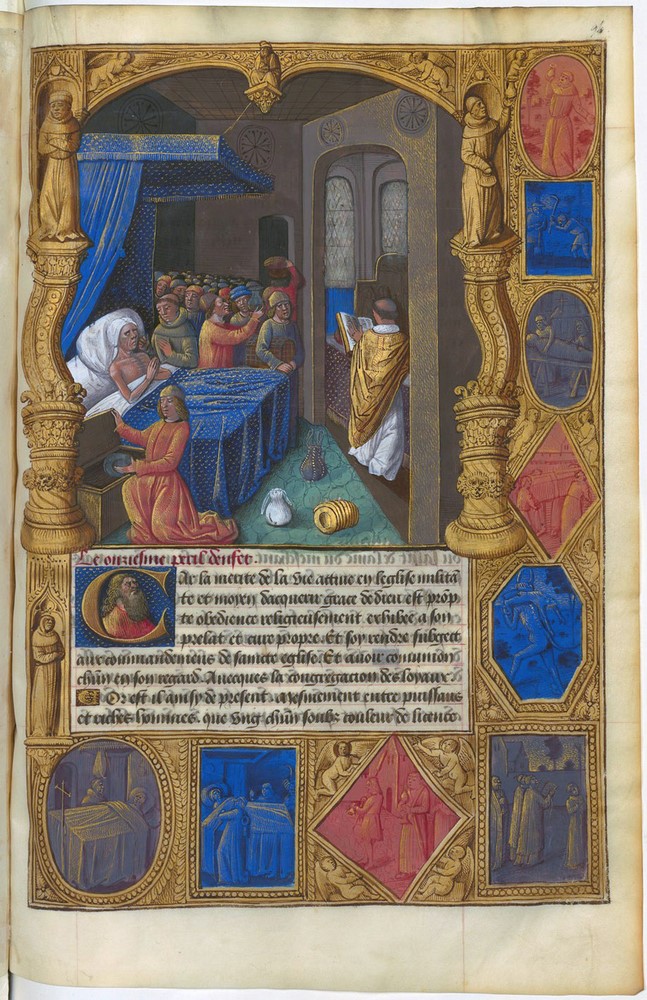 Le onziesme peril denfer
Car la merite de la vie active en leglise milita
te et moyen dacquerir grace de dieu est prop
te obedience religieusement exhibee a son
prelat et cure propre. Et soy rendre subgect
aux commandemens de saincte eglise. Et avoir communion
chun en son regard. Avecques la congregacion des loyaux
Or est il ainsy de present. mesmement entre puissans
et riches hommes. que ung chun soubz couleur de licence